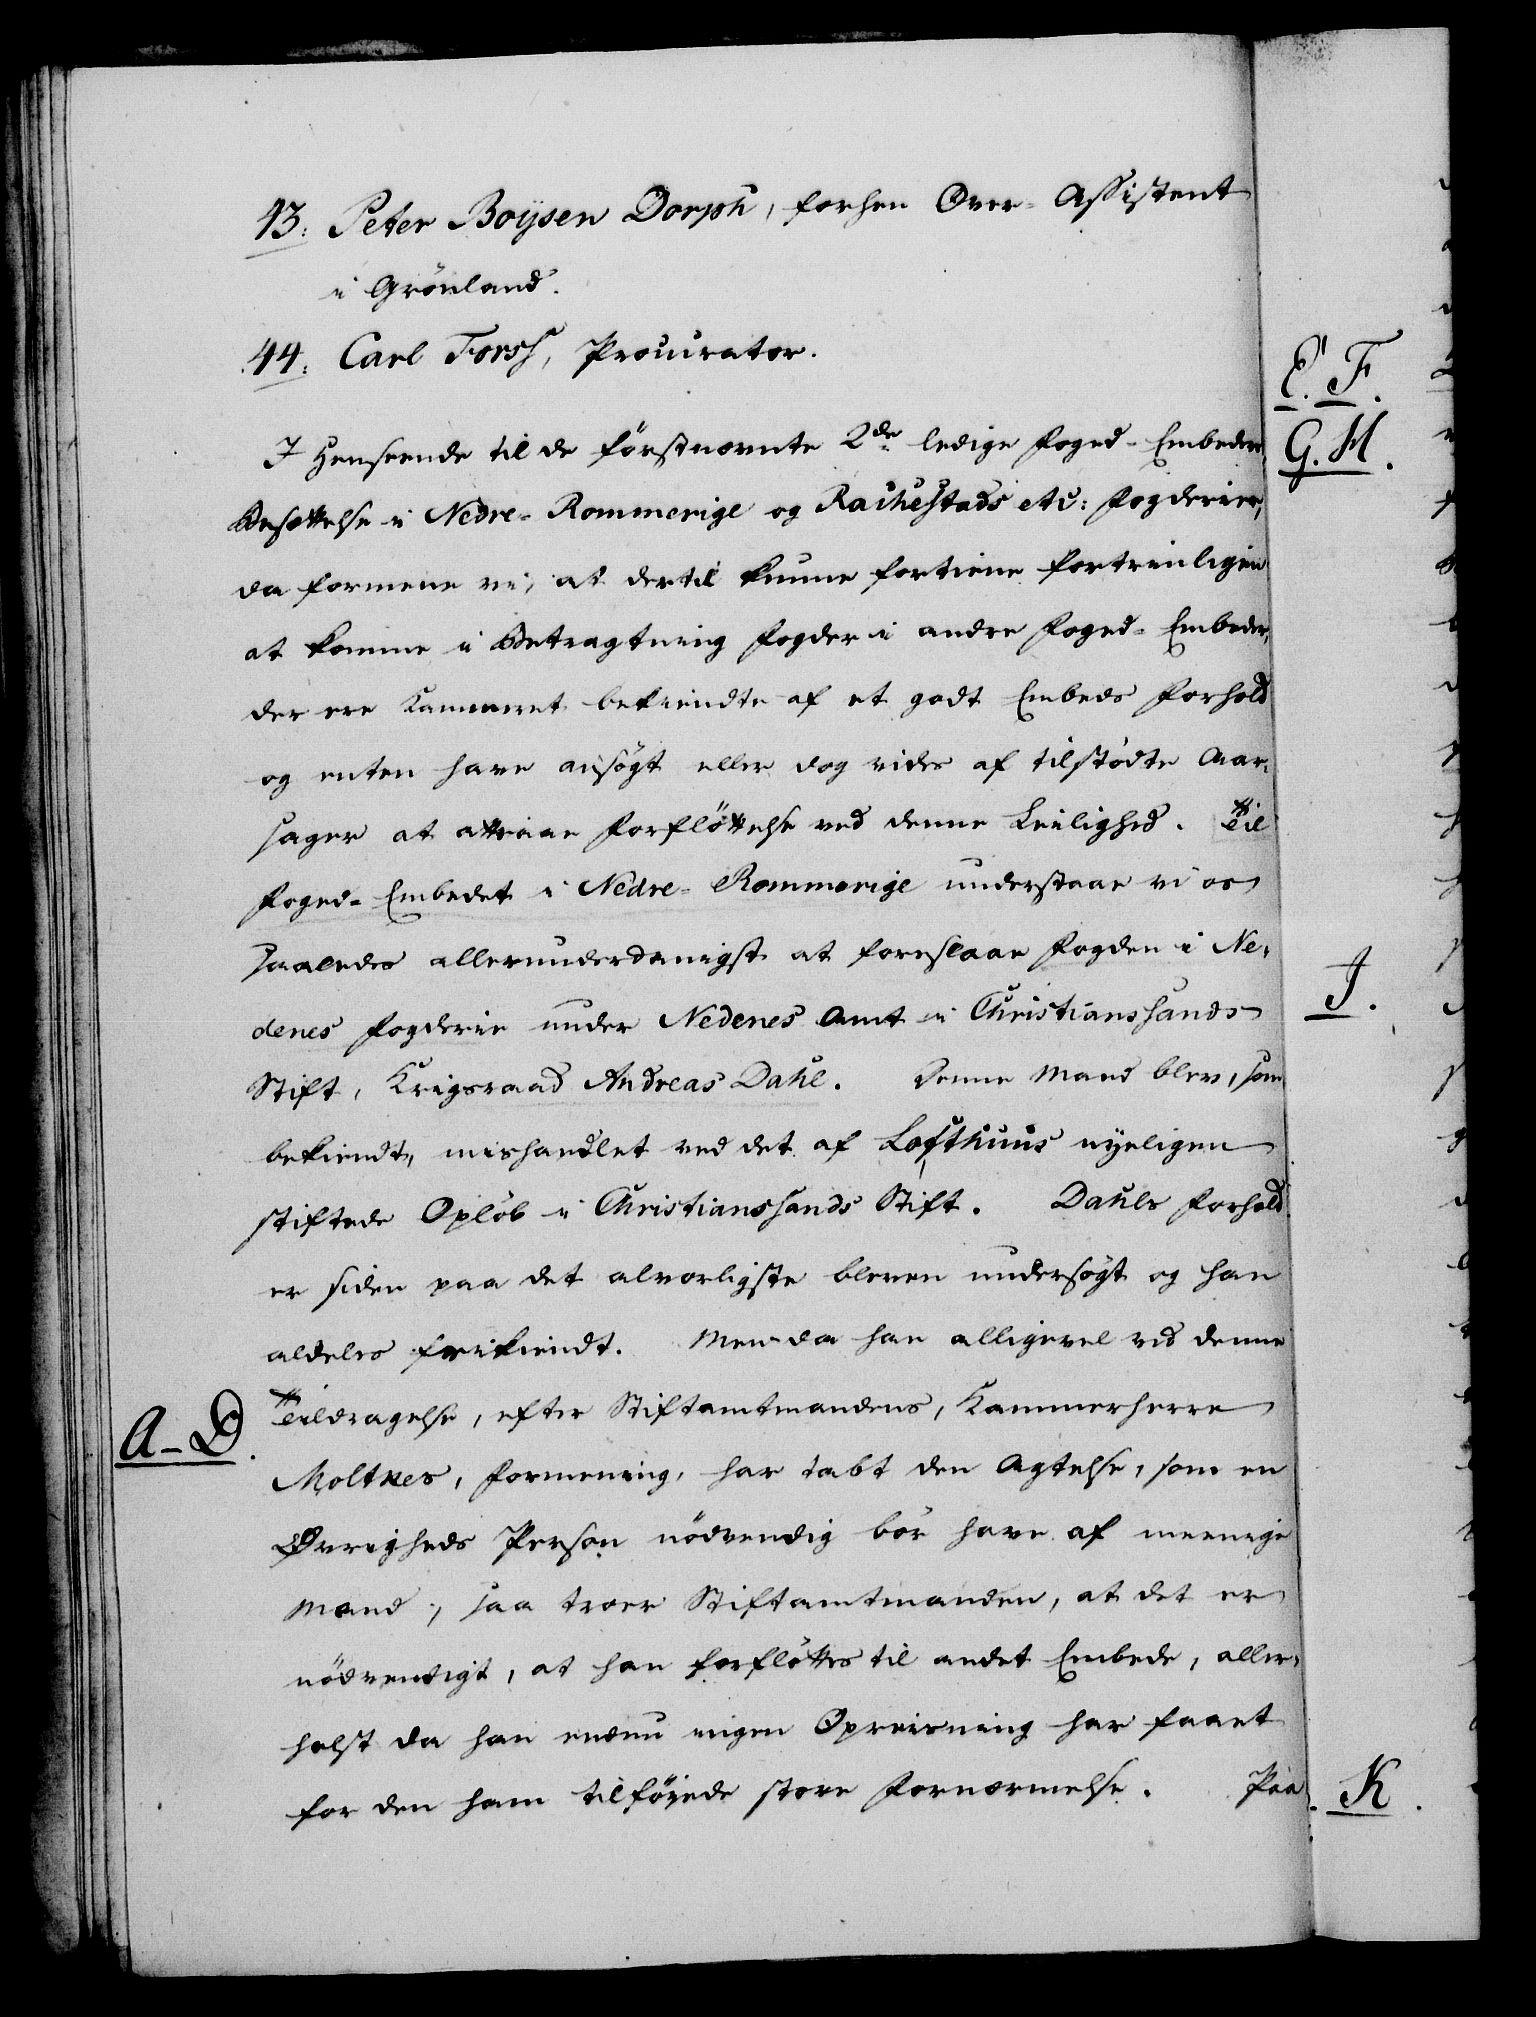 43. Peter Boÿsen Dorph, forhen Over-Assistent
i Grönland.
44. Carl Forsh, Procurator.
I Henseende til de förstnævnte 2de ledige Foged-Embeders
Besættelse i Nedre-Rommerige og Rachestads etc: Fogderier,
da formene vi, at dertil kunne fortiene fortrinligen
at komme i Betragtning Fogder i andre Foged-Embeder,
der ere Kammeret bekiendte af et godt Embeds Forhold
og enten have ansögt eller dog vides af tilstödte Aar-
sager at attraae Forflöttelse ved denne Leilighed. Til
Foged-Embedet i Nedre-Rommerige understaae vi os
saaledes allerunderdanigst at foreslaae Fogden i Ne-
denes Fogderie under Nedenes Amt i Christianssands
Stift, Krigsraad Andreas Dahl. Denne Mand blev, som
bekiendt, mishandlet ved det af Lofthuus nyeligen
stiftede Oplöb i Christianssands Stift. Dahls Forhold
er siden paa det alvorligste bleven undersögt og han
aldeles frikiendt. Men da han alligevel ved denne
Tildragelse, efter Stiftamtmandens, Kammerherre
A-D.
Moltkes, Formening, har tabt den Agtelse, som en
Øvrigheds Person nödvendig bör have af meenige
Mand, saa troer Stiftamtmanden, at det er
nödvendigt, at han forflöttes til andet Embede, aller-
helst da han endnu ingen Opreisning har faaet
for den ham tilföiede store Fornærmelse. Paa
E. F.
G. H.
J.
K.